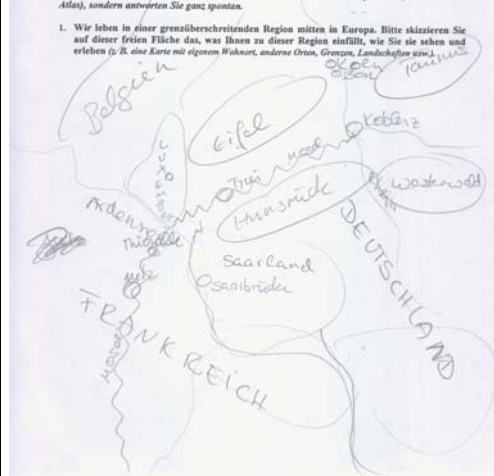 Atlas), sondern antworten Sie ganz spontan.
1. Wir leben in einer grenzüberschreitenden Region mitten in Europa. Bitte skizzieren Sie
auf dieser freien Fläche das, was Ihnen zu dieser Region einfällt, wie Sie sie sehen und
erleben (z. B. eine Karte mit eigenem Wohnort, anderne Orten, Grenzen, Landschaften usw.).
Köln
Bonn
Taunus
Belgien
Eifel
Koblenz
LUXEMBURG
Mosel
Trier
Westerwald
Rhein
Ardennen
Hunsrück
Thionville
DEUTSCHLAND
Saarland
Saarbrücken
Metz
FRANKREICH
Mosel